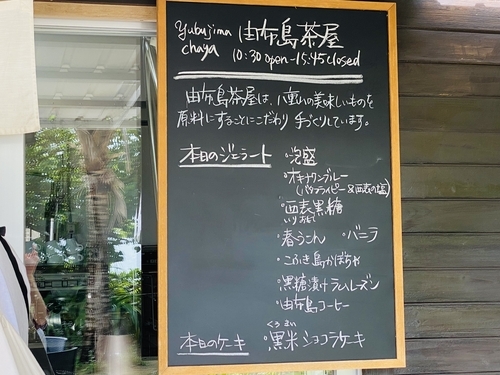 Yubujima 由布島茶屋
chaya 10:30 open-15:45 closed
由布島茶屋は、八重山の美味しいものを
原料にすることにこだわり 手づくりしています。
本日のジェラート ・泡盛
・オキナワンブルー
(バタフライピー&西表の塩)
・西表黒糖
いりおもて
・春うこん ・バニラ
・こふき島かぼちゃ
・黒糖漬けラムレーズン
・由布島コーヒー
くろ まい
本日のケーキ ・黒米ショコラケーキ